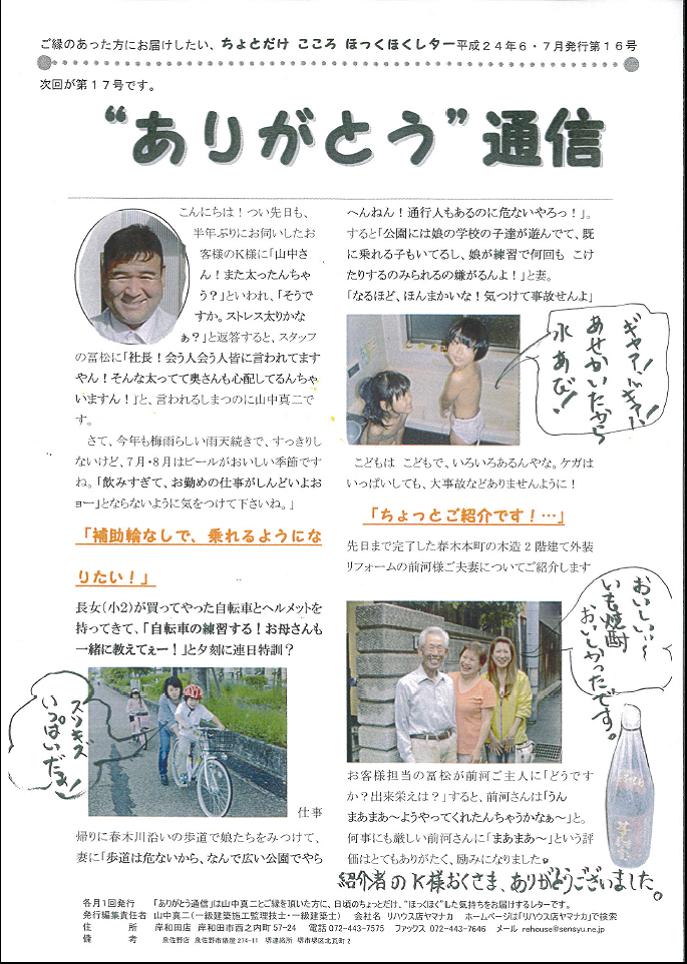 ご縁のあった方にお届けしたい、ちょとだけ こころ ほっくほくレター平成24年6・7月発行第16号
次回が第17号です。
“ありがとう”通信
こんにちは！つい先日も、
半年ぶりにお伺いしたお
客様のK様に「山中さ
ん！また太ったんちゃ
う？」といわれ、「そうで
すか。ストレス太りかな
ぁ？」と返答すると、スタッフ
の冨松に「社長！会う人会う人皆に言われてます
やん！そんな太ってて奥さんも心配してるんちゃ
いますん！」と、言われるしまつのに山中真二で
す。
さて、今年も梅雨らしい雨天続きで、すっきりし
ないけど、7月・8月はビールがおいしい季節です
ね。「飲みすぎて、お勤めの仕事がしんどいよお
ョー」とならないように気をつけて下さいね。」
「補助輪なしで、乗れるようにな
りたい！」
長女（小2）が買ってやった自転車とヘルメットを
持ってきて、「自転車の練習する！お母さんも
一緒に教えてぇー！」と夕刻に連日特訓？
スリキズ
いっぱいだよ！
仕事
帰りに春木川沿いの歩道で娘たちをみつけて、
妻に「歩道は危ないから、なんで広い公園でやら
へんねん！通行人もあるのに危ないやろっ！」。
すると「公園には娘の学校の子達が遊んでて、既
に乗れる子もいてるし、娘が練習で何回も こけ
たりするのみられるの嫌がるんよ！」と妻。
「なるほど、ほんまかいな！気つけて事故せんよ」
ギャア！！ギャハハ！
あせかいたから
水あび！
こどもは こどもで、いろいろあるんやな。ケガは
いっぱいしても、大事故などありませんように！
「ちょっとご紹介です！…」
先日まで完了した春木本町の木造2階建て外装
リフォームの前河様ご夫妻についてご紹介します
おいしい～
いも焼酎
おいしかったです。
お客様担当の冨松が前河ご主人に「どうです
か？出来栄えは？」すると、前河さんは「うん
まあまあ～ようやってくれたんちゃうかなぁ～」と。
何事にも厳しい前河さんに「まあまあ～」という評
価はとてもありがたく、励みになりました。
紹介者のK様おくさま、ありがとうございました。
各月1回発行 「ありがとう通信」は山中真二とご縁を頂いた方に、日頃のちょっとだけ、“ほっくほく”した気持ちをお届けするレターです。
発行編集責任者 山中真二（一級建築施工監理技士・一級建築士） 会社名 リハウス店ヤマナカ ホームページは「リハウス店ヤマナカ」で検索
住 所 岸和田店 岸和田市西之内町57-24 電話072-443-7575 ファックス 072-443-7646 メール rehouse@sensyu.ne.jp
備 考 泉佐野店 泉佐野市俵屋274-11 堺連絡所 堺市堺区北瓦町2